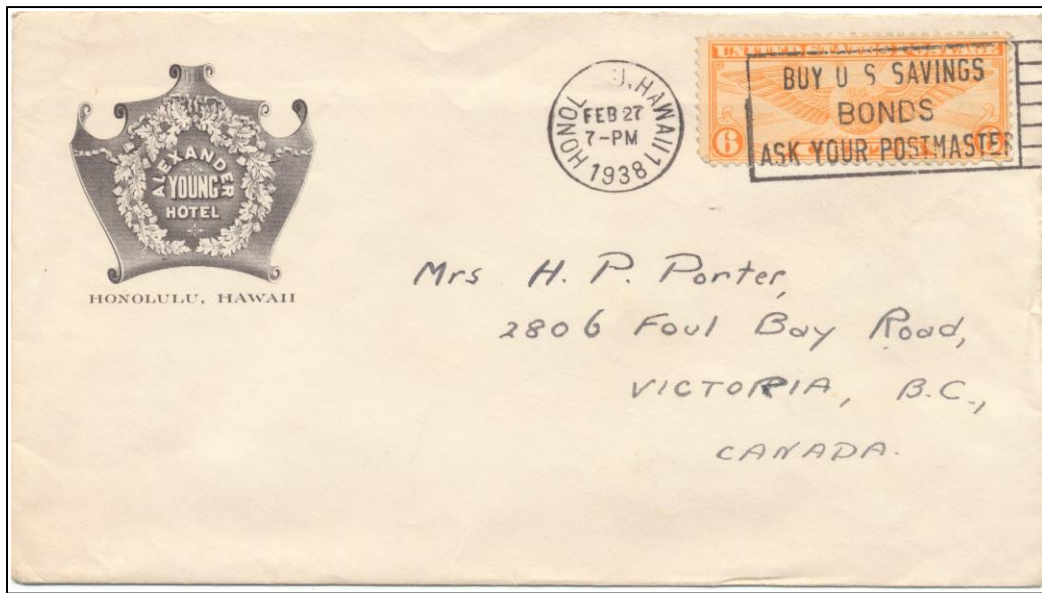 ALEXANDER
YOUNG
HOTEL
HONOLULU, HAWAII
HONOL U, HAWAII 1
FEB 27
7-PM
1938
UNITED STATES POSTAGE
6
BUY U S SAVINGS
BONDS
ASK YOUR POSTMASTER
Mrs H. P. Porter,
2806 Foul Bay Road,
VICTORIA, B.C.,
CANADA.